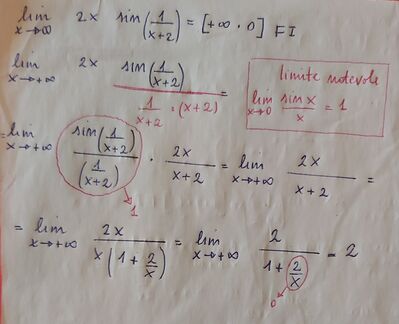 lim x→∞ 2x sin(1/(x+2)) = [+∞ · 0] FI
lim x→+∞ 2x sin(1/(x+2)) / (1/(x+2) · (x+2)) =
limite notevole
lim x→0 sin x / x = 1
= lim x→+∞ sin(1/(x+2)) / (1/(x+2)) · 2x/(x+2) = lim x→+∞ 2x/(x+2) =
1
= lim x→+∞ 2x / (x(1 + 2/x)) = lim x→+∞ 2 / (1 + 2/x) = 2
0